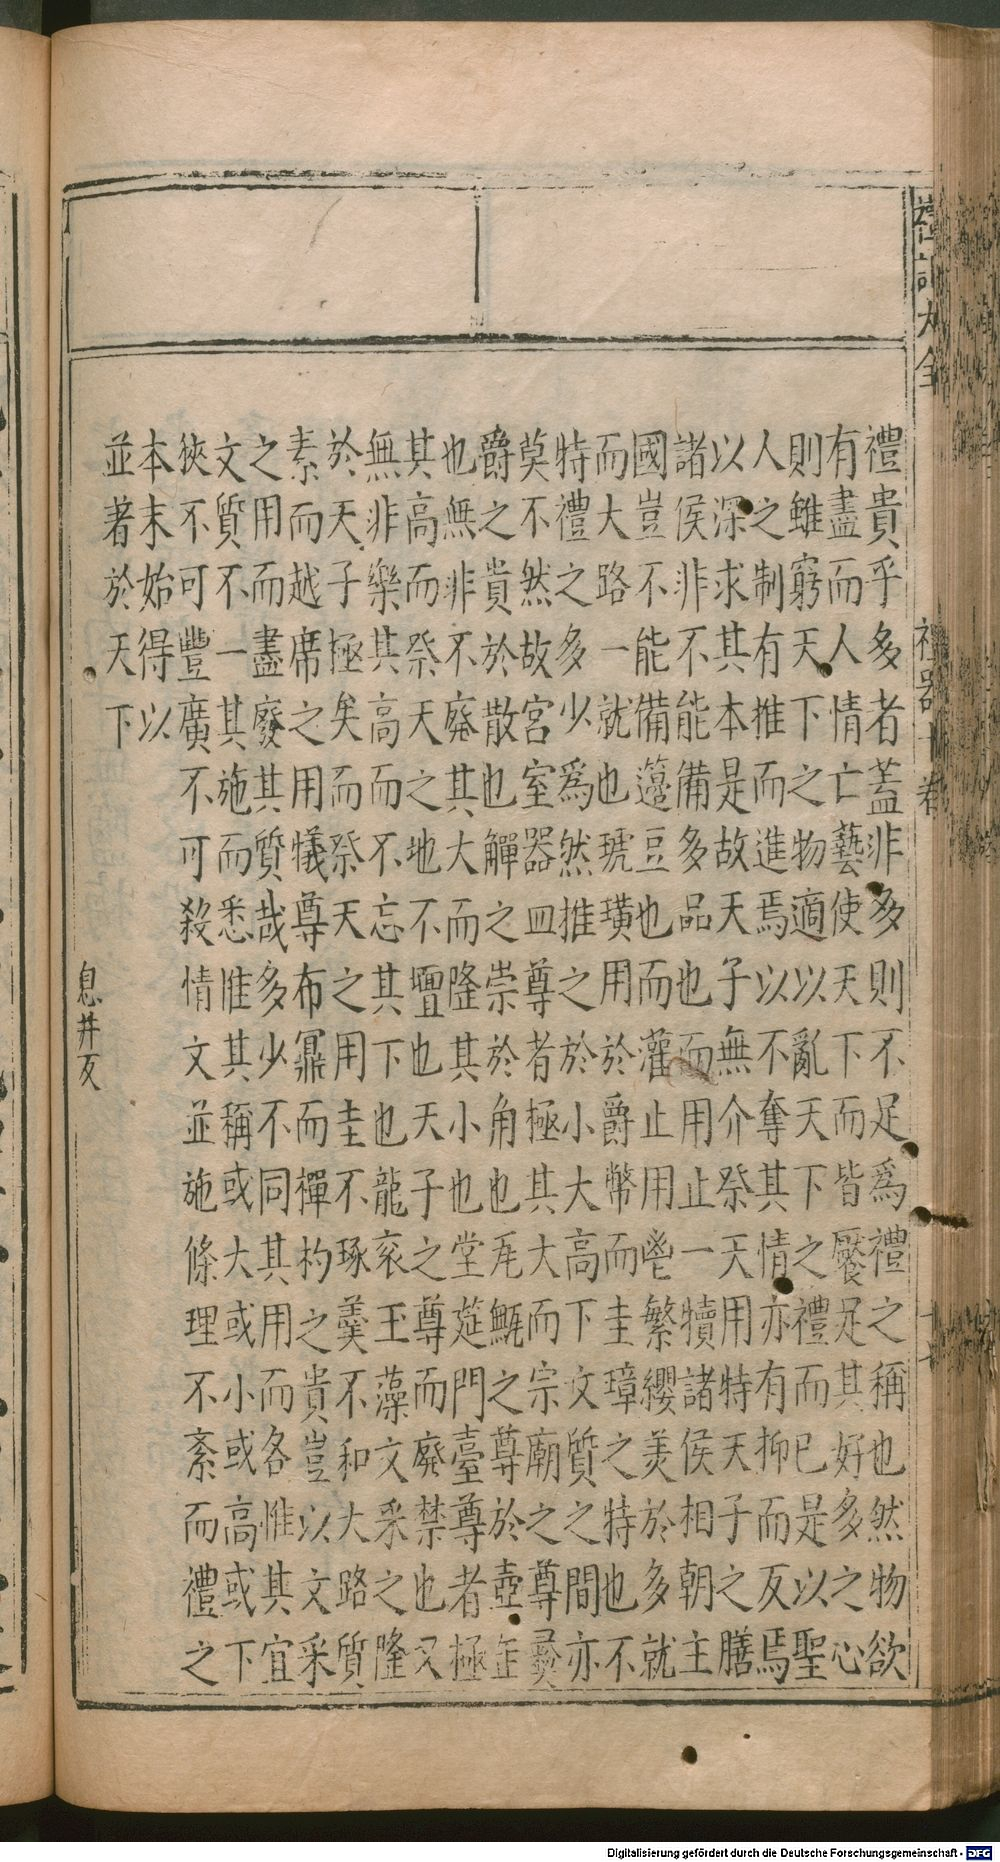 禮記大全　禮器十卷　十七
禮貴乎多者蓋非多則不足爲禮之稱也然物欲
有盡而人情亡藝使天下而皆饜足其好多之心
則雖窮天下之物適以亂天下之禮而已是以聖
人之制有推而進焉以不奪其情亦有抑而反焉
以深求其本是故天子無介祭天用特天子之膳
諸侯非不能備多品也而用止一犢諸侯相朝主
國豈不能備籩豆也而灌止用鬯繁纓美於多就
而大路一就也琥璜用於爵幣而圭璋之特也不
特禮之多少爲然推之於小大高下文質之間亦
莫不然故宮室器皿尊者極其大而宗廟之尊彝
爵之貴於散也觶之崇於角也瓦甒之尊於壺缶
也無非不廢其大而隆其小也堂筵門臺尊者極
其高而祭天之地不壇也天子之尊而廢禁也又
無非樂其高而不忘其下也龍衮玉藻文采之隆
於天子極矣而祭天之用圭不琢羹不和大路質
素而越席之用犧尊布鼏而樿杓之貴豈以文采
之用而盡廢其質哉多少不同其用而各惟其宜
文質不一其施而悉惟其稱或大或小或高或下
狹不可豐廣不可殺情文並施條理不紊而禮之
本末始得以
並著於天下
息井反
Digitalisierung gefördert durch die Deutsche Forschungsgemeinschaft - DFG